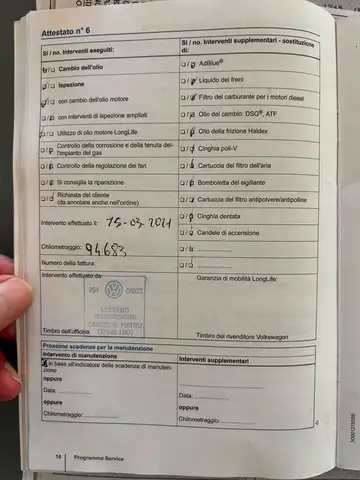 Attestato n° 6
Si / no. Interventi eseguiti:
Cambio dell'olio
Ispezione
con cambio dell'olio motore
con interventi di ispezione ampliati
Utilizzo di olio motore LongLife.
Controllo della corrosione e della tenuta dell'impianto del gas
Controllo della regolazione dei fari
Si consiglia la riparazione
Richieste del cliente
(da annotare anche nell'ordine)
Intervento effettuato il: 15-03-2021
Chilometraggio: 94683
Numero della fattura:
Intervento effettuato da:
Timbro dell'officina
Si / no. Interventi supplementari - sostituzione
di:
AdBlue®
Liquido dei freni
Filtro del carburante per i motori diesel
Olio del cambio: DSG®, ATF
Olio della frizione Haldex
Cinghia poli-V
Cartuccia del filtro dell'aria
Bomboletta del sigillante
Cartuccia del filtro antipolvere/antipolline
Cinghia dentata
Candele di accensione
Garanzia di mobilità LongLife:
Timbro del rivenditore Volkswagen
Prossime scadenze per la manutenzione
Intervento di manutenzione
in base all'indicatore delle scadenze di manutenzione
oppure
Data:
oppure
Chilometraggio:
Interventi supplementari
Data:
oppure
Chilometraggio:
16 Programma Service